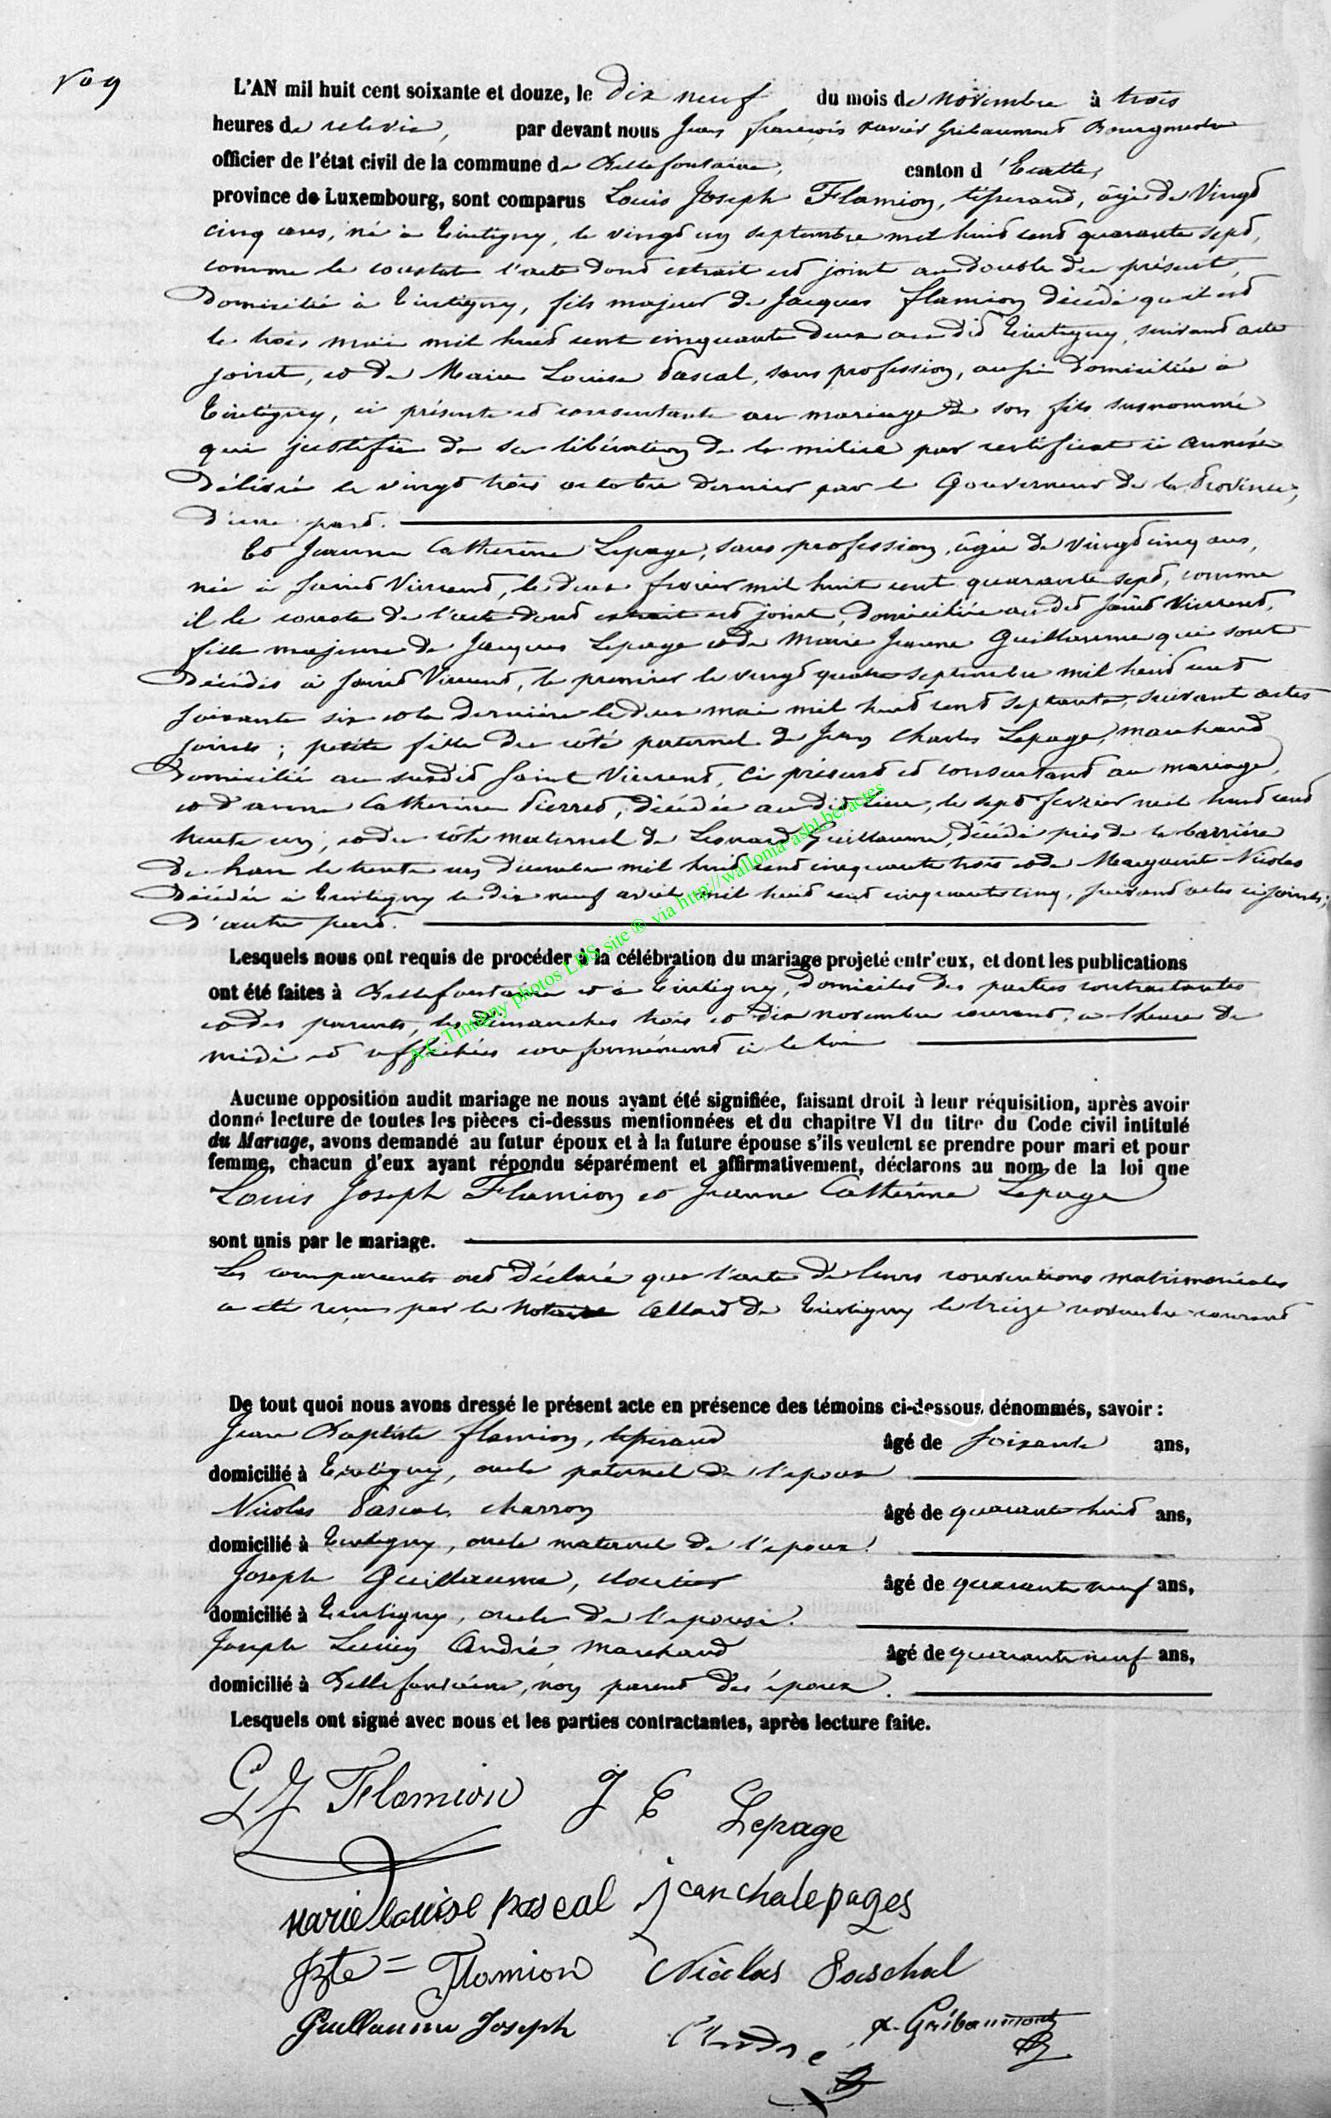 N° 9
L'AN mil huit cent soixante et douze, le dix neuf du mois de novembre à trois
heures de relevée, par devant nous Jean françois xavier Gribaumont Bourgmestre
officier de l'état civil de la commune de Bellefontaine, canton d'Etalle,
province de Luxembourg, sont comparus Louis Joseph Flamion, tisserand, âgé de Vingt
cinq ans, né à Tintigny, le vingt un septembre mil huit cent quarante sept,
comme le constate l'acte dont extrait est joint au double du présent,
Domicilié à Tintigny, fils majeur de Jacques flamion décédé qu'il est
le trois mai mil huit cent cinquante deux au dit Tintigny, suivant acte
joint, et de Marie Louise Pascal, sans profession, aussi Domiciliée à
Tintigny, ci présente et consentante au mariage de son fils susnommé
qui justifie de sa libération de la milice par certificat ci annexé
Délivré le vingt trois octobre dernier par le Gouverneur de la Province,
D'une part.
Et Jeanne Catherine Lepage, sans profession, âgée de vingt cinq ans,
née à Saint Vincent, le deux février mil huit cent quarante sept, comme
il le conste de l'acte dont extrait est joint, domiciliée au dit Saint Vincent,
fille majeure de Jacques Lepage et de Marie Jeanne Guillaume qui sont
Décédés à Saint Vincent, le premier le vingt quatre septembre mil huit cent
soixante six et la dernière le deux mai mil huit cent septante, suivant actes
joints; petite fille du côté paternel de Jean Charles Lepage, marchand
Domicilié au susdit Saint Vincent, ci présent et consentant au mariage,
et d'anne Catherine Pierret, décédée au dit lieu, le sept février mil huit cent
trente un, et du côté maternel de Leonard Guillaume, Décédé près de la barrière
de han le trente un Décembre mil huit cent cinquante trois et de Marguerite Nicolas
Décédée à Tintigny le dix neuf avril mil huit cent cinquante cinq, suivant actes ci joints;
D'autre part.
Lesquels nous ont requis de procéder à la célébration du mariage projeté entr'eux, et dont les publications
ont été faites à Bellefontaine et à Tintigny, domiciles des parties contractantes
et des parents, les dimanches trois et dix novembre courant, à l'heure de
midi et affichées conformément à la loi
Aucune opposition audit mariage ne nous ayant été signifiée, faisant droit à leur réquisition, après avoir
donné lecture de toutes les pièces ci-dessus mentionnées et du chapitre VI du titre du Code civil intitulé
du Mariage, avons demandé au futur époux et à la future épouse s'ils veulent se prendre pour mari et pour
femme, chacun d'eux ayant répondu séparément et affirmativement, déclarons au nom de la loi que
Louis Joseph Flamion et Jeanne Catherine Lepage
sont unis par le mariage.
Les comparants ont Déclaré que l'acte de leurs conventions matrimoniales
a été reçu par le Notaire Allard de Tintigny le treize novembre courant
De tout quoi nous avons dressé le présent acte en présence des témoins ci-dessous dénommés, savoir :
Jean Baptiste flamion, tisserand âgé de soixante ans,
domicilié à Tintigny, oncle paternel de l'époux
Nicolas Pascal, charron âgé de quarante huit ans,
domicilié à Tintigny, oncle maternel de l'époux.
Joseph Guillaume, cloutier âgé de quarante neuf ans,
domicilié à Tintigny, oncle de l'épouse.
Joseph Lucien André marchand âgé de quarante neuf ans,
domicilié à Bellefontaine, non parent des époux.
Lesquels ont signé avec nous et les parties contractantes, après lecture faite.
L J Flamion J C Lepage
marie louise pascal jean cha lepages
J Bte = Flamion Nicolas Paschal
Guillaume Joseph André x. Gribaumont
A.C. Tintigny photos LDS, site ® via http://wallonia-asbl.be/actes